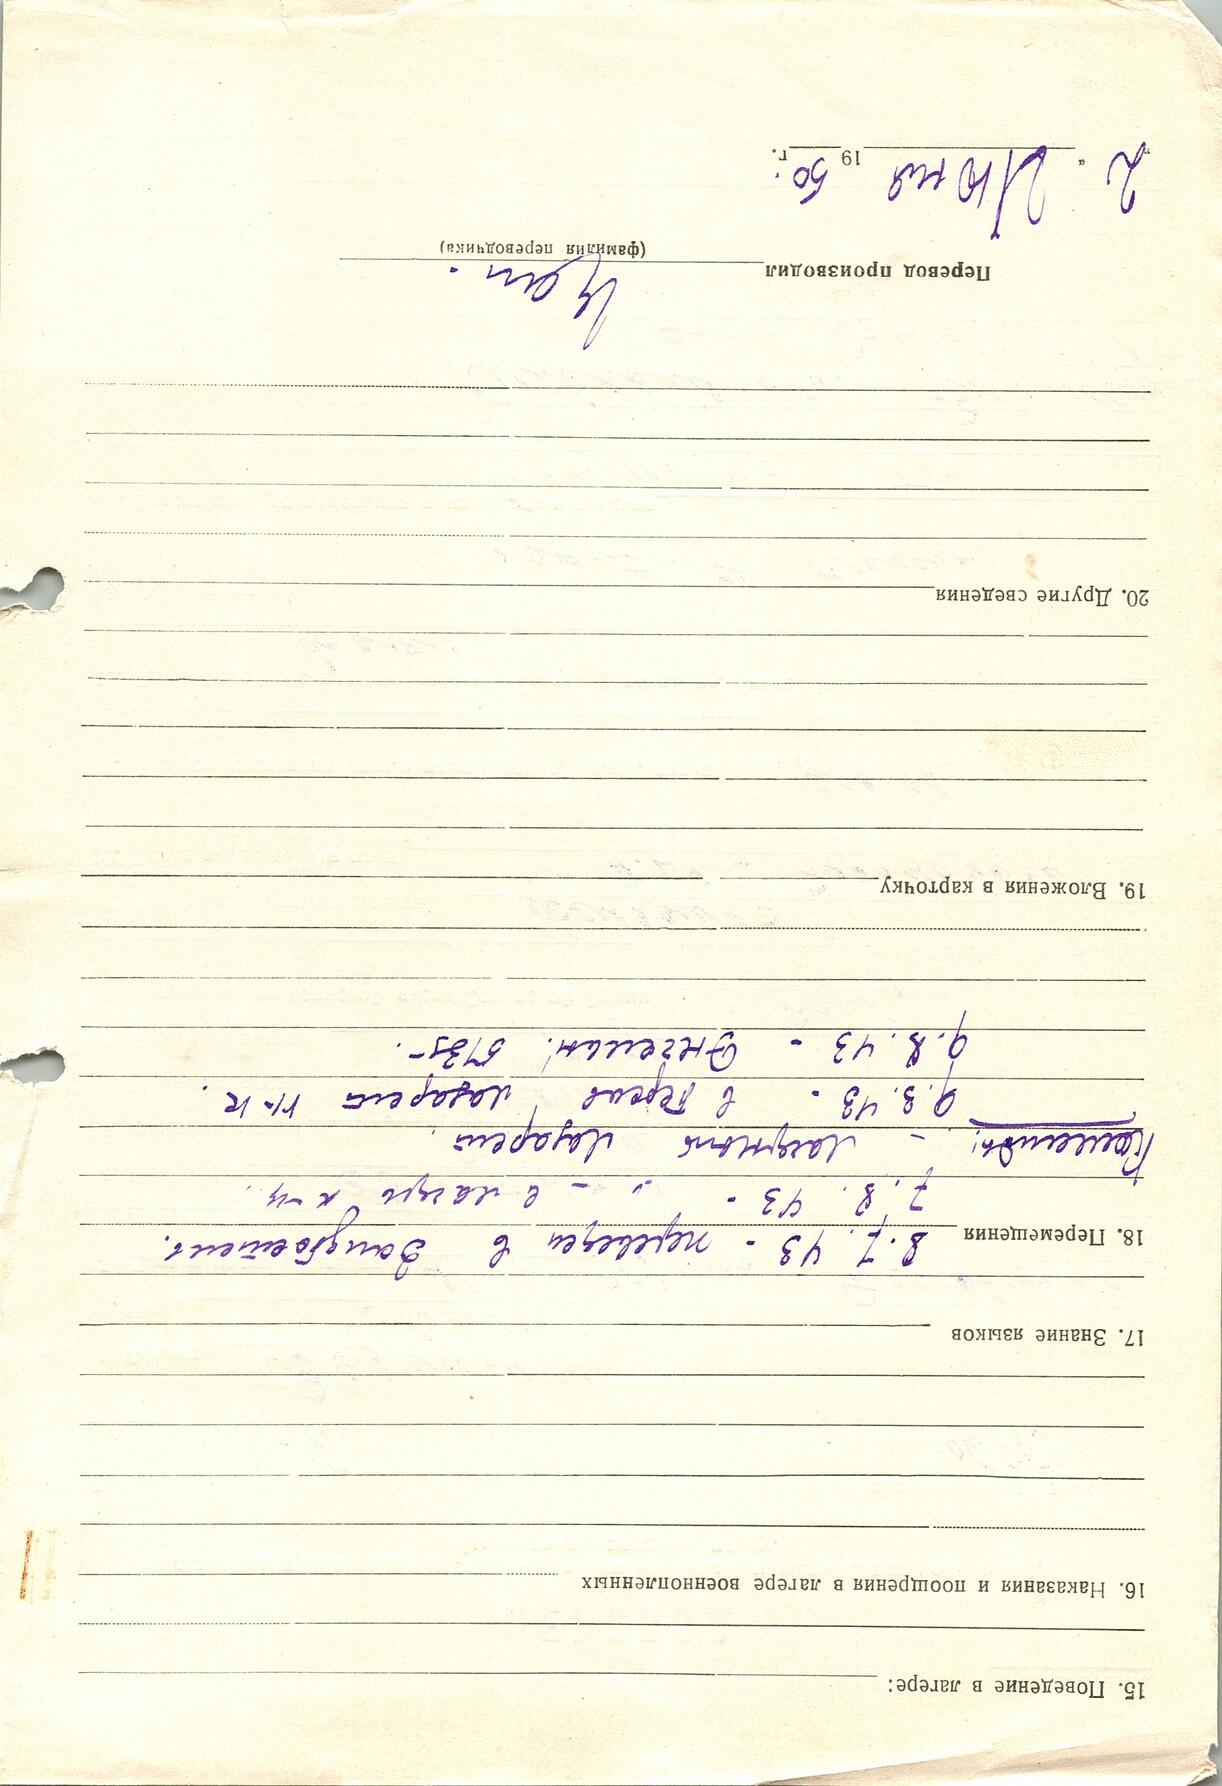 15. Поведение в лагере:
16. Наказания и поощрения в лагере военнопленных
17. Знание языков
18. Перемещения 8.7.43 - переведен в Зандбостель.
7.8.43 - " - в лагерь X-Ц.
- лазарет.
9.8.43 - в лазарет
9.8.43 - 5735.
19. Вложения в карточку
20. Другие сведения
Перевод производил
(фамилия переводчика)
"2" Июня 1950 г.